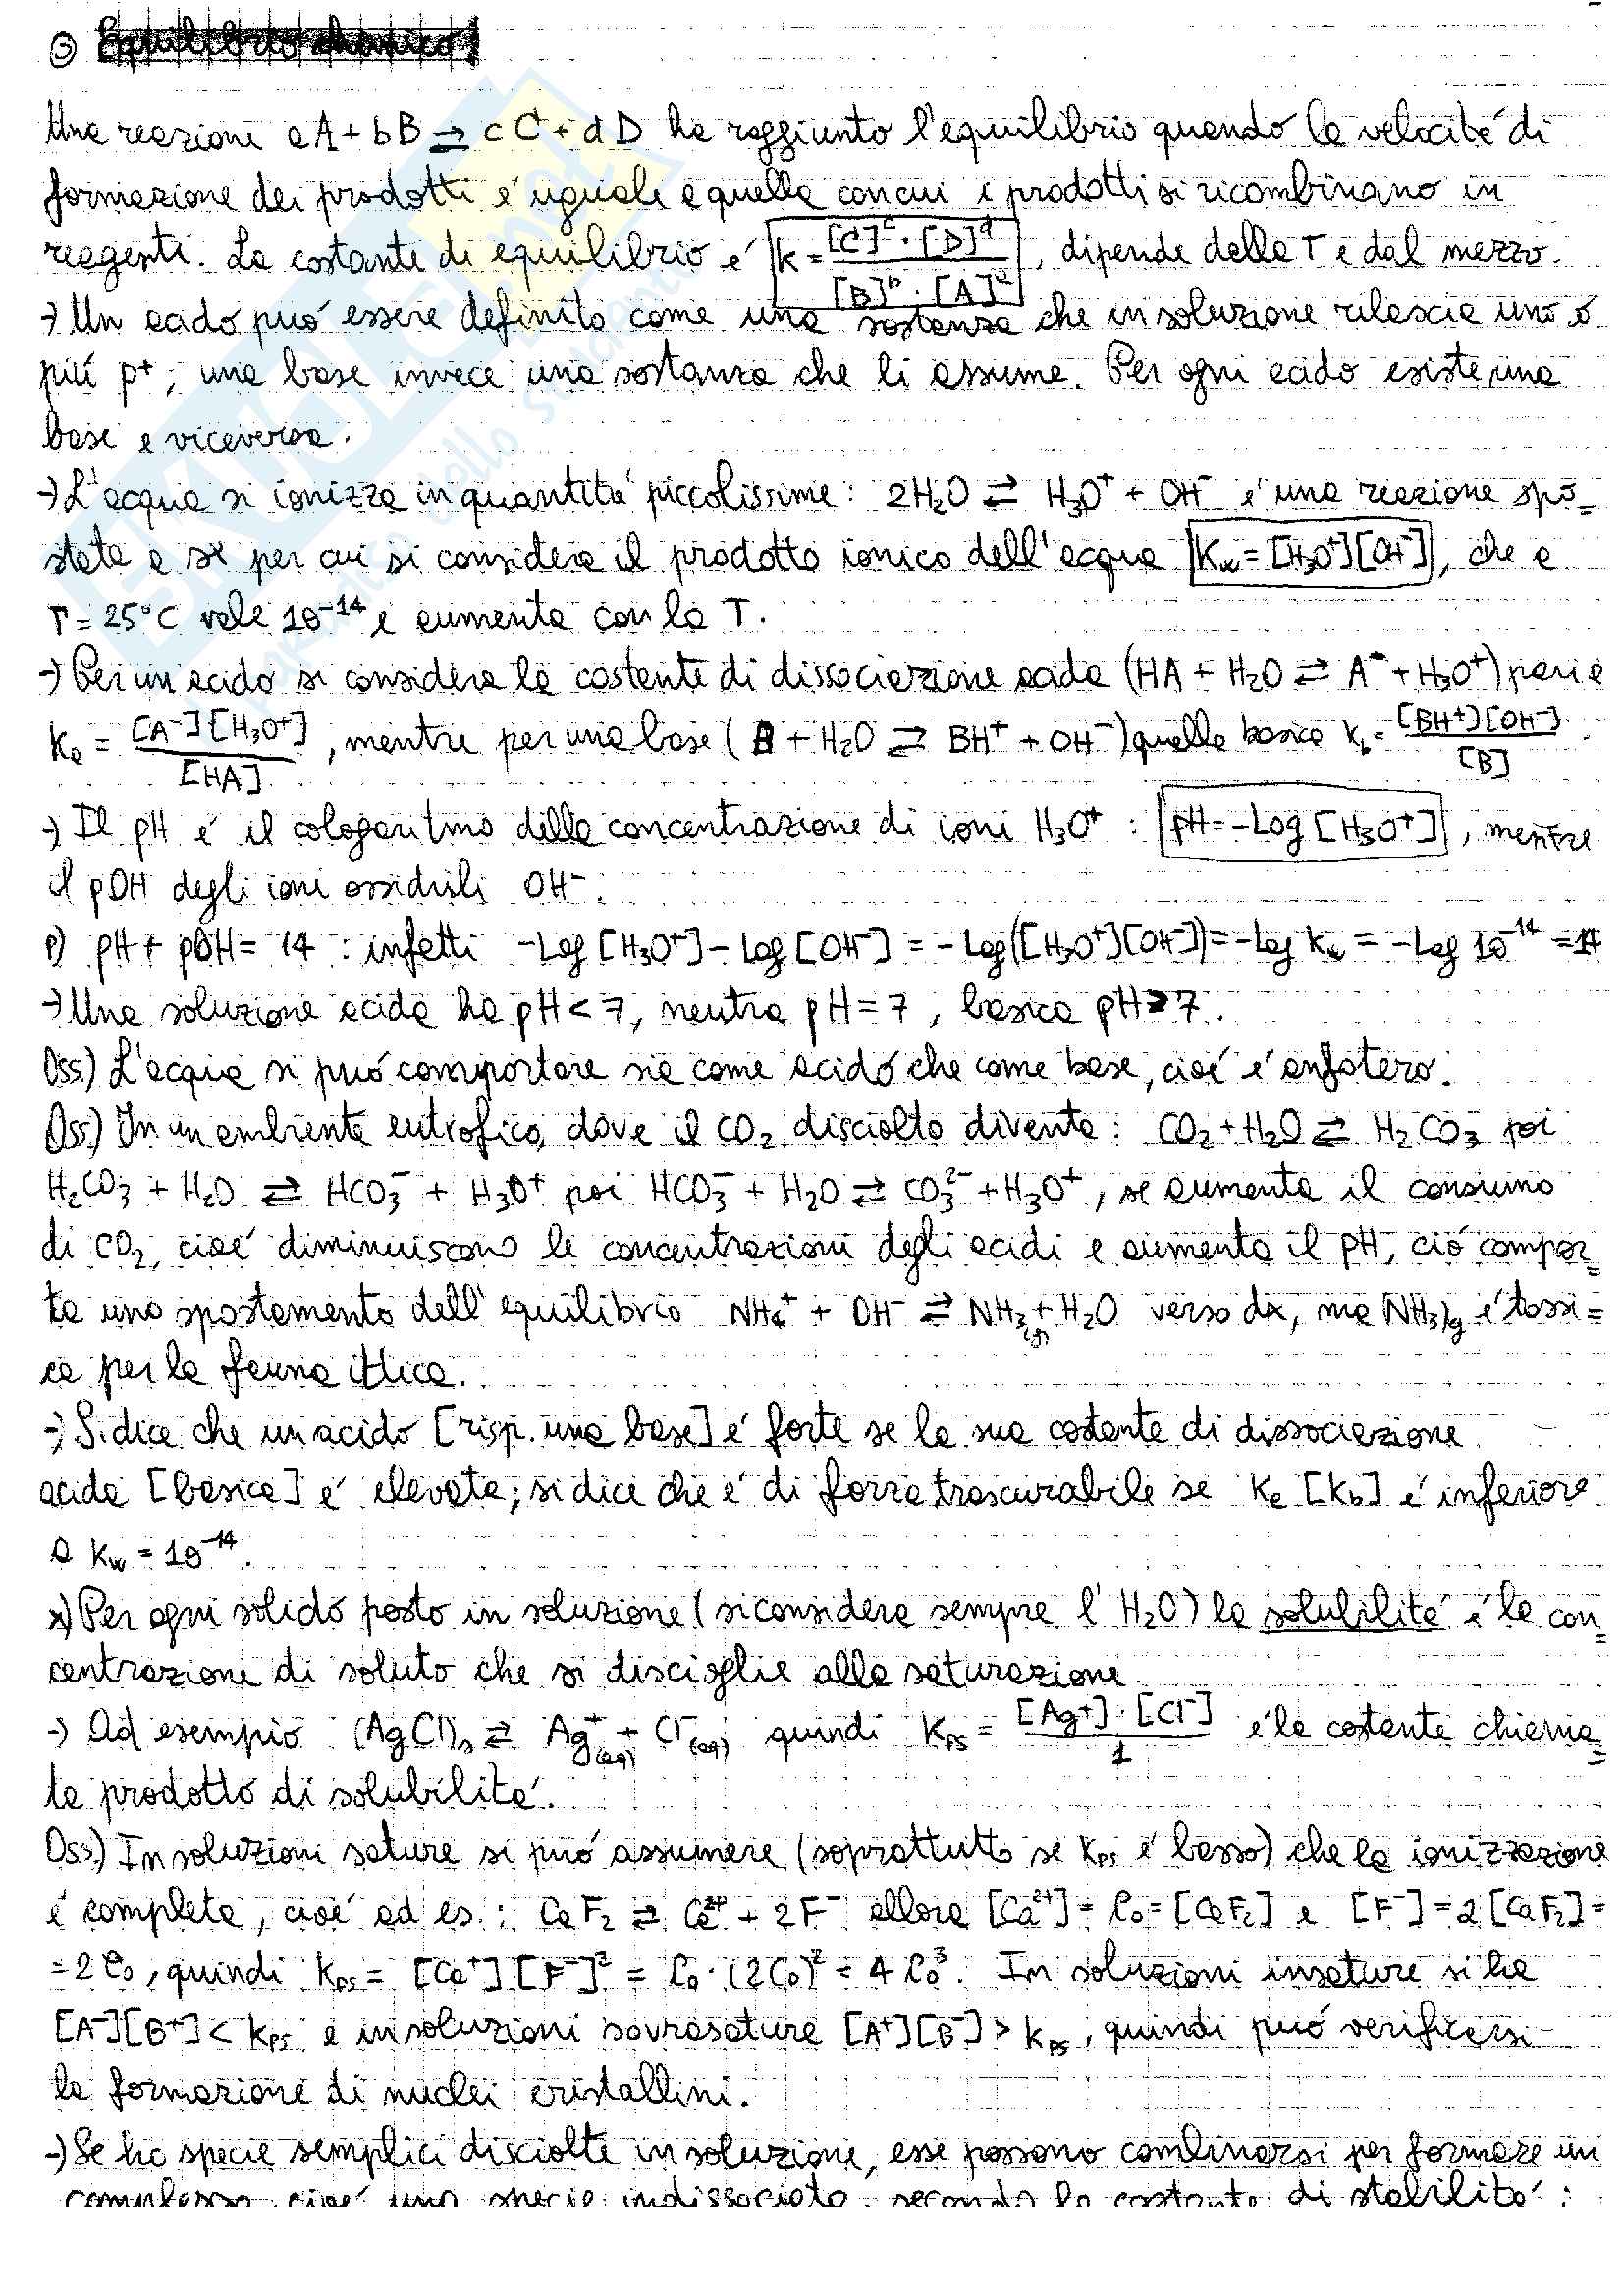 ③ Equilibrio chimico
Una reazione aA + bB ⇌ cC + dD ha raggiunto l'equilibrio quando la velocitá di
formazione dei prodotti é uguale a quella con cui i prodotti si ricombinano in
reagenti. La costante di equilibrio é K = [C]^c · [D]^d / [B]^b · [A]^a , dipende dalla T e dal mezzo.
→ Un acido puó essere definito come una sostanza che in soluzione rilascia uno o
piú p⁺, una base invece una sostanza che li assume. Per ogni acido esiste una
base e viceversa.
→ L'acqua si ionizza in quantitá piccolissime: 2H₂O ⇌ H₃O⁺ + OH⁻ é una reazione spo=
stata a sx per cui si considera il prodotto ionico dell'acqua Kw = [H₃O⁺][OH⁻], che a
T = 25°C vale 10⁻¹⁴ e aumenta con la T.
→ Per un acido si considera la costante di dissociazione acida (HA + H₂O ⇌ A⁻ + H₃O⁺) pari a
Ka = [A⁻][H₃O⁺] / [HA] , mentre per una base (B + H₂O ⇌ BH⁺ + OH⁻) quella basica Kb = [BH⁺][OH⁻] / [B] .
→ Il pH é il cologaritmo della concentrazione di ioni H₃O⁺ : pH = -Log [H₃O⁺] , mentre
il pOH degli ioni ossidrili OH⁻.
P) pH + pOH = 14 : infatti -Log [H₃O⁺] - Log [OH⁻] = -Log([H₃O⁺][OH⁻]) = -Log Kw = -Log 10⁻¹⁴ = 14
→ Una soluzione acida ha pH < 7, neutra pH = 7, basica pH > 7.
Oss.) L'acqua si puó comportare sia come acido che come base, cioé é anfotero.
Oss.) In un ambiente eutrofico, dove il CO₂ disciolto diventa: CO₂ + H₂O ⇌ H₂CO₃ poi
H₂CO₃ + H₂O ⇌ HCO₃⁻ + H₃O⁺ poi HCO₃⁻ + H₂O ⇌ CO₃²⁻ + H₃O⁺, se aumenta il consumo
di CO₂, cioé diminuiscono le concentrazioni degli acidi e aumenta il pH, ció compor=
ta uno spostamento dell'equilibrio NH₄⁺ + OH⁻ ⇌ NH₃(g) + H₂O verso dx, ma (NH₃)g é tossi=
ca per la fauna ittica.
→ Si dice che un acido [risp. una base] é forte se la sua costante di dissociazione
acida [basica] é elevata; si dice che é di forza trascurabile se Ka [Kb] é inferiore
a Kw = 10⁻¹⁴.
x) Per ogni solido posto in soluzione (si considera sempre l'H₂O) la solubilitá é la con=
centrazione di soluto che si discioglie alla saturazione.
→ Ad esempio (AgCl)s ⇌ Ag⁺(aq) + Cl⁻(aq) quindi Kps = [Ag⁺] · [Cl⁻] / 1 é la costante chiama=
ta prodotto di solubilitá.
Oss.) In soluzioni sature si puó assumere (soprattutto se Kps é basso) che la ionizzazione
é completa, cioé ad es.: CaF₂ ⇌ Ca²⁺ + 2F⁻ allora [Ca²⁺] = C₀ = [CaF₂] e [F⁻] = 2[CaF₂] =
= 2C₀, quindi Kps = [Ca⁺][F⁻]² = C₀ · (2C₀)² = 4C₀³. In soluzioni insature si ha
[A⁻][B⁺] < Kps e in soluzioni sovrasature [A⁺][B⁻] > Kps, quindi puó verificarsi
la formazione di nuclei cristallini.
→ Se ho specie semplici disciolte in soluzione, esse possono combinarsi per formare un
complesso, cioé una specie indissociata, secondo la costante di stabilitá: